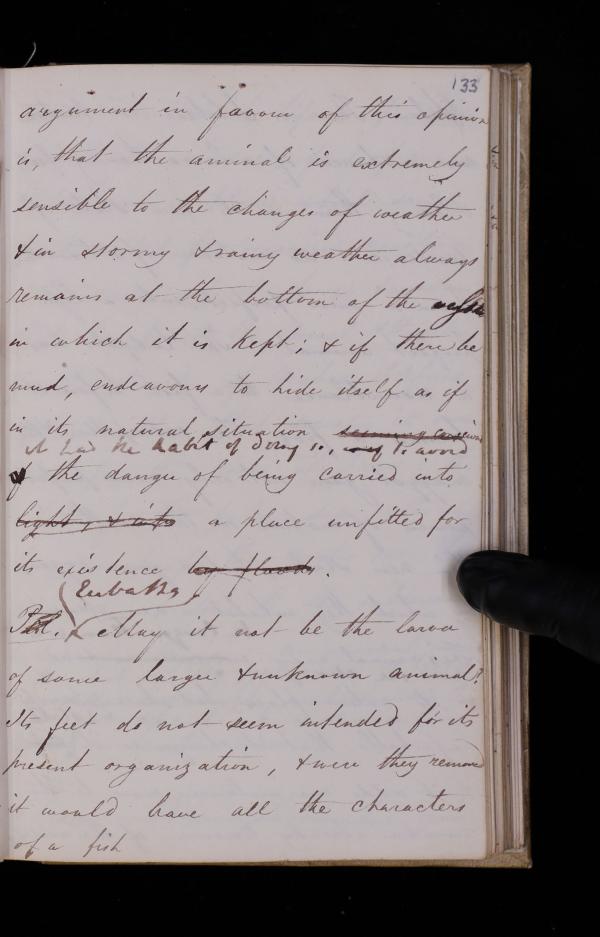 133
argument in favour of this opinion
is, that the aminal is extremely
sensible to the changes of weather
& in stormy & rainy weather always
remains at the bottom of the vessel
in which it is kept; & if there be
mud, endeavours to hide itself as if
in its natural situation seeming
it had the habit of doing so, to avoid
the danger of being carried into
light, & into a place unfitted for
its existence by floods.
Eubathes
May it not be the larva
of some larger & unknown animal?
Its feet do not seem intended for its
present organization, & were they removed
it would have all the characters
of a fish